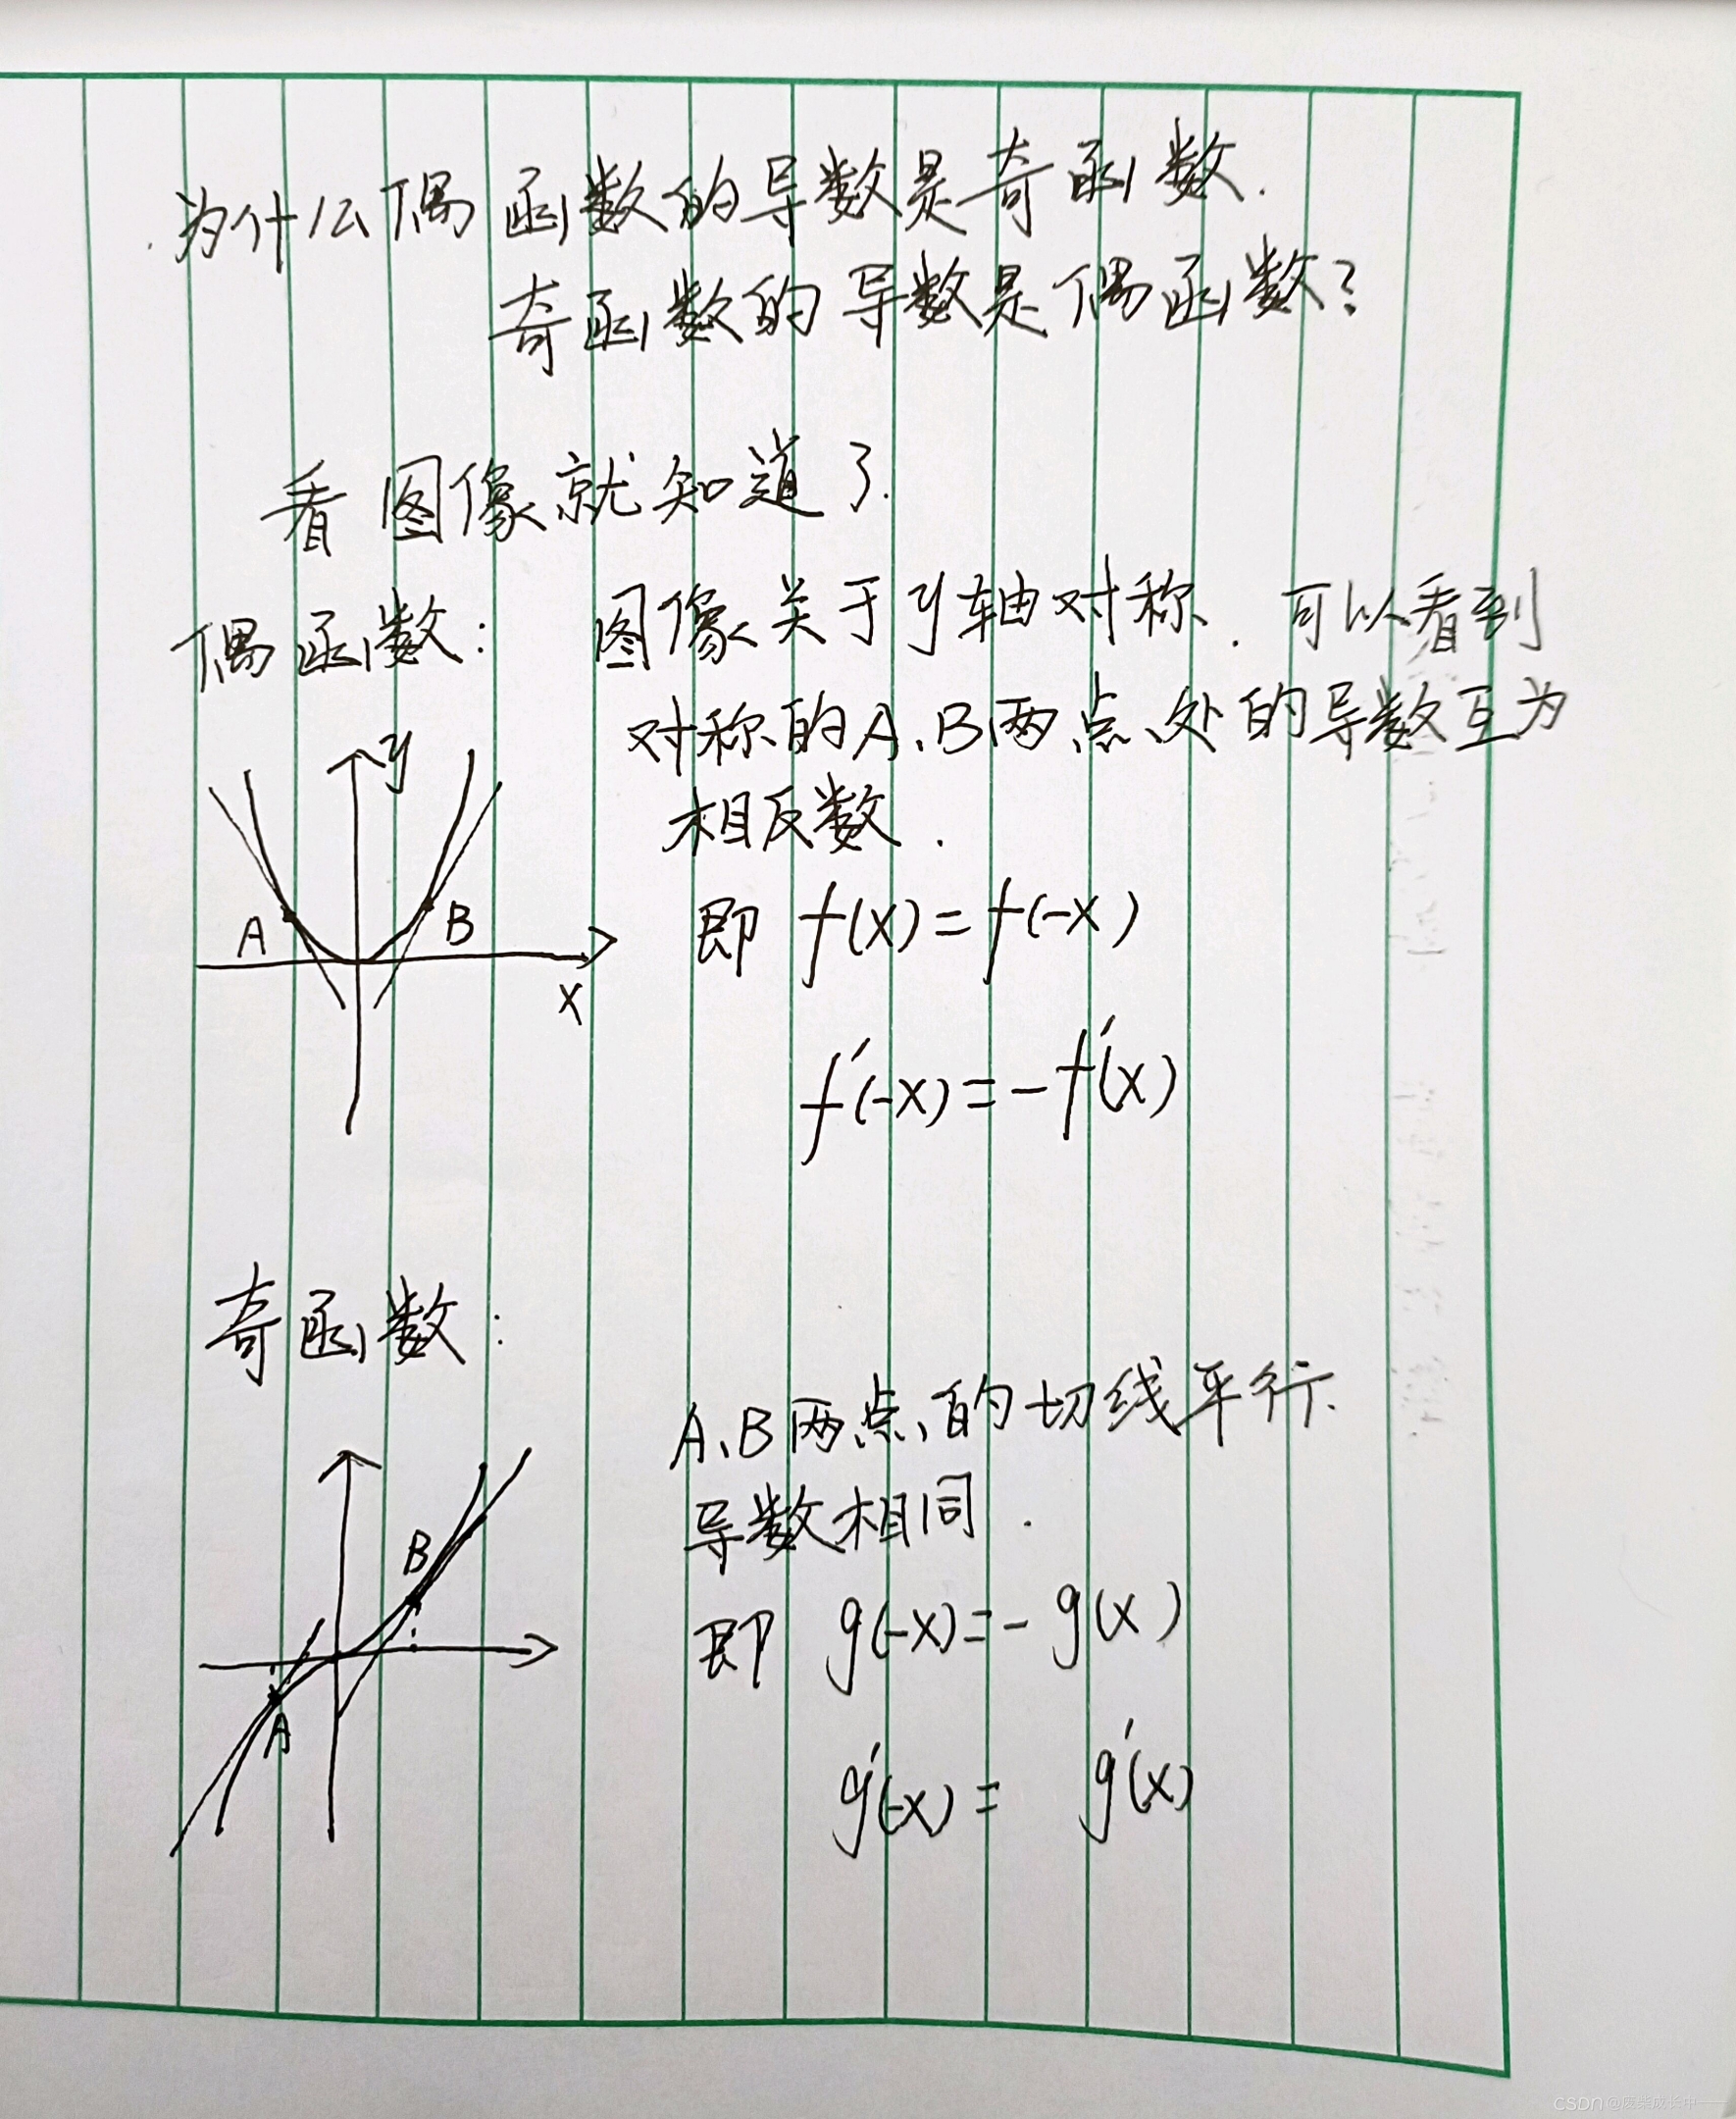 为什么偶函数的导数是奇函数.
奇函数的导数是偶函数?
看图像就知道了.
偶函数: 图像关于y轴对称. 可以看到
对称的A、B两点处的导数互为
相反数.
y
A
B
x
即 f(x)=f(-x)
f'(-x)=-f'(x)
奇函数:
A、B两点的切线平行.
导数相同.
B
A
即 g(-x)=-g(x)
g'(-x)= g'(x)
CSDN @废柴成长中